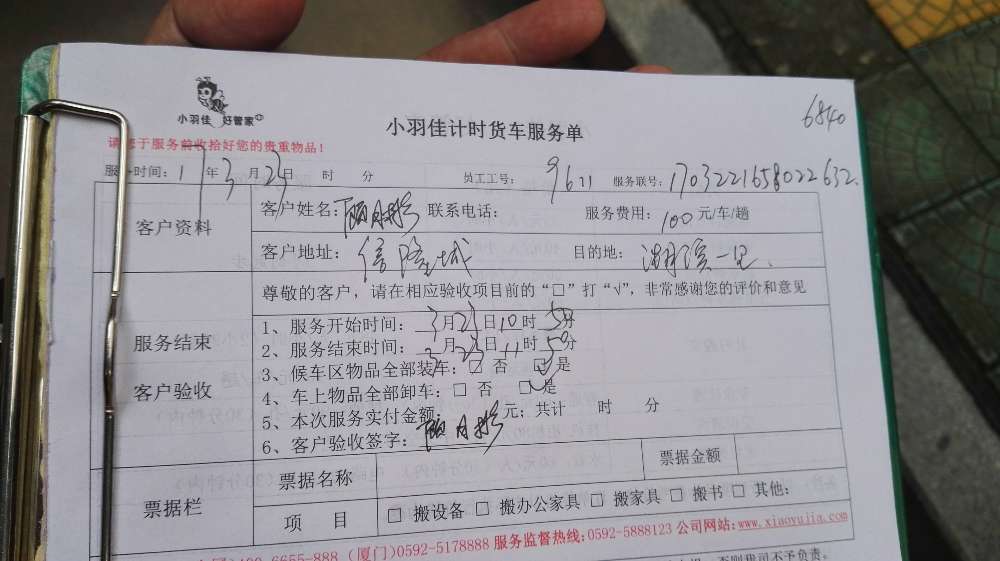 小羽佳 好管家
小羽佳计时货车服务单
6840
请您于服务前收拾好您的贵重物品！
服务时间：17年3月23日 时 分 员工工号：9621 服务联号：1703221658022632
客户资料
客户姓名： 联系电话： 服务费用：100元/车/趟
客户地址：信隆城 目的地：湖滨一里
服务结束
客户验收
尊敬的客户，请在相应验收项目前的“□”打“√”，非常感谢您的评价和意见
1、服务开始时间：3月23日10时5分
2、服务结束时间：3月23日11时5分
3、候车区物品全部装车：□ 否 ☑ 是
4、车上物品全部卸车：□ 否 □ 是
5、本次服务实付金额： 元；共计 时 分
6、客户验收签字：
票据栏
票据名称 票据金额
项 目 □ 搬设备 □ 搬办公家具 □ 搬家具 □ 搬书 □ 其他：
400-6655-888（厦门）0592-5178888 服务监督热线：0592-5888123 公司网站：www.xiaoyujia.com
否则我司不予负责。